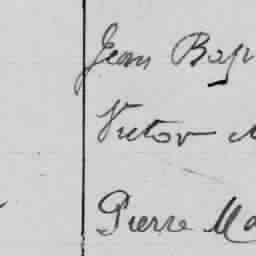 Jean Bap
Victor M
Pierre Ma